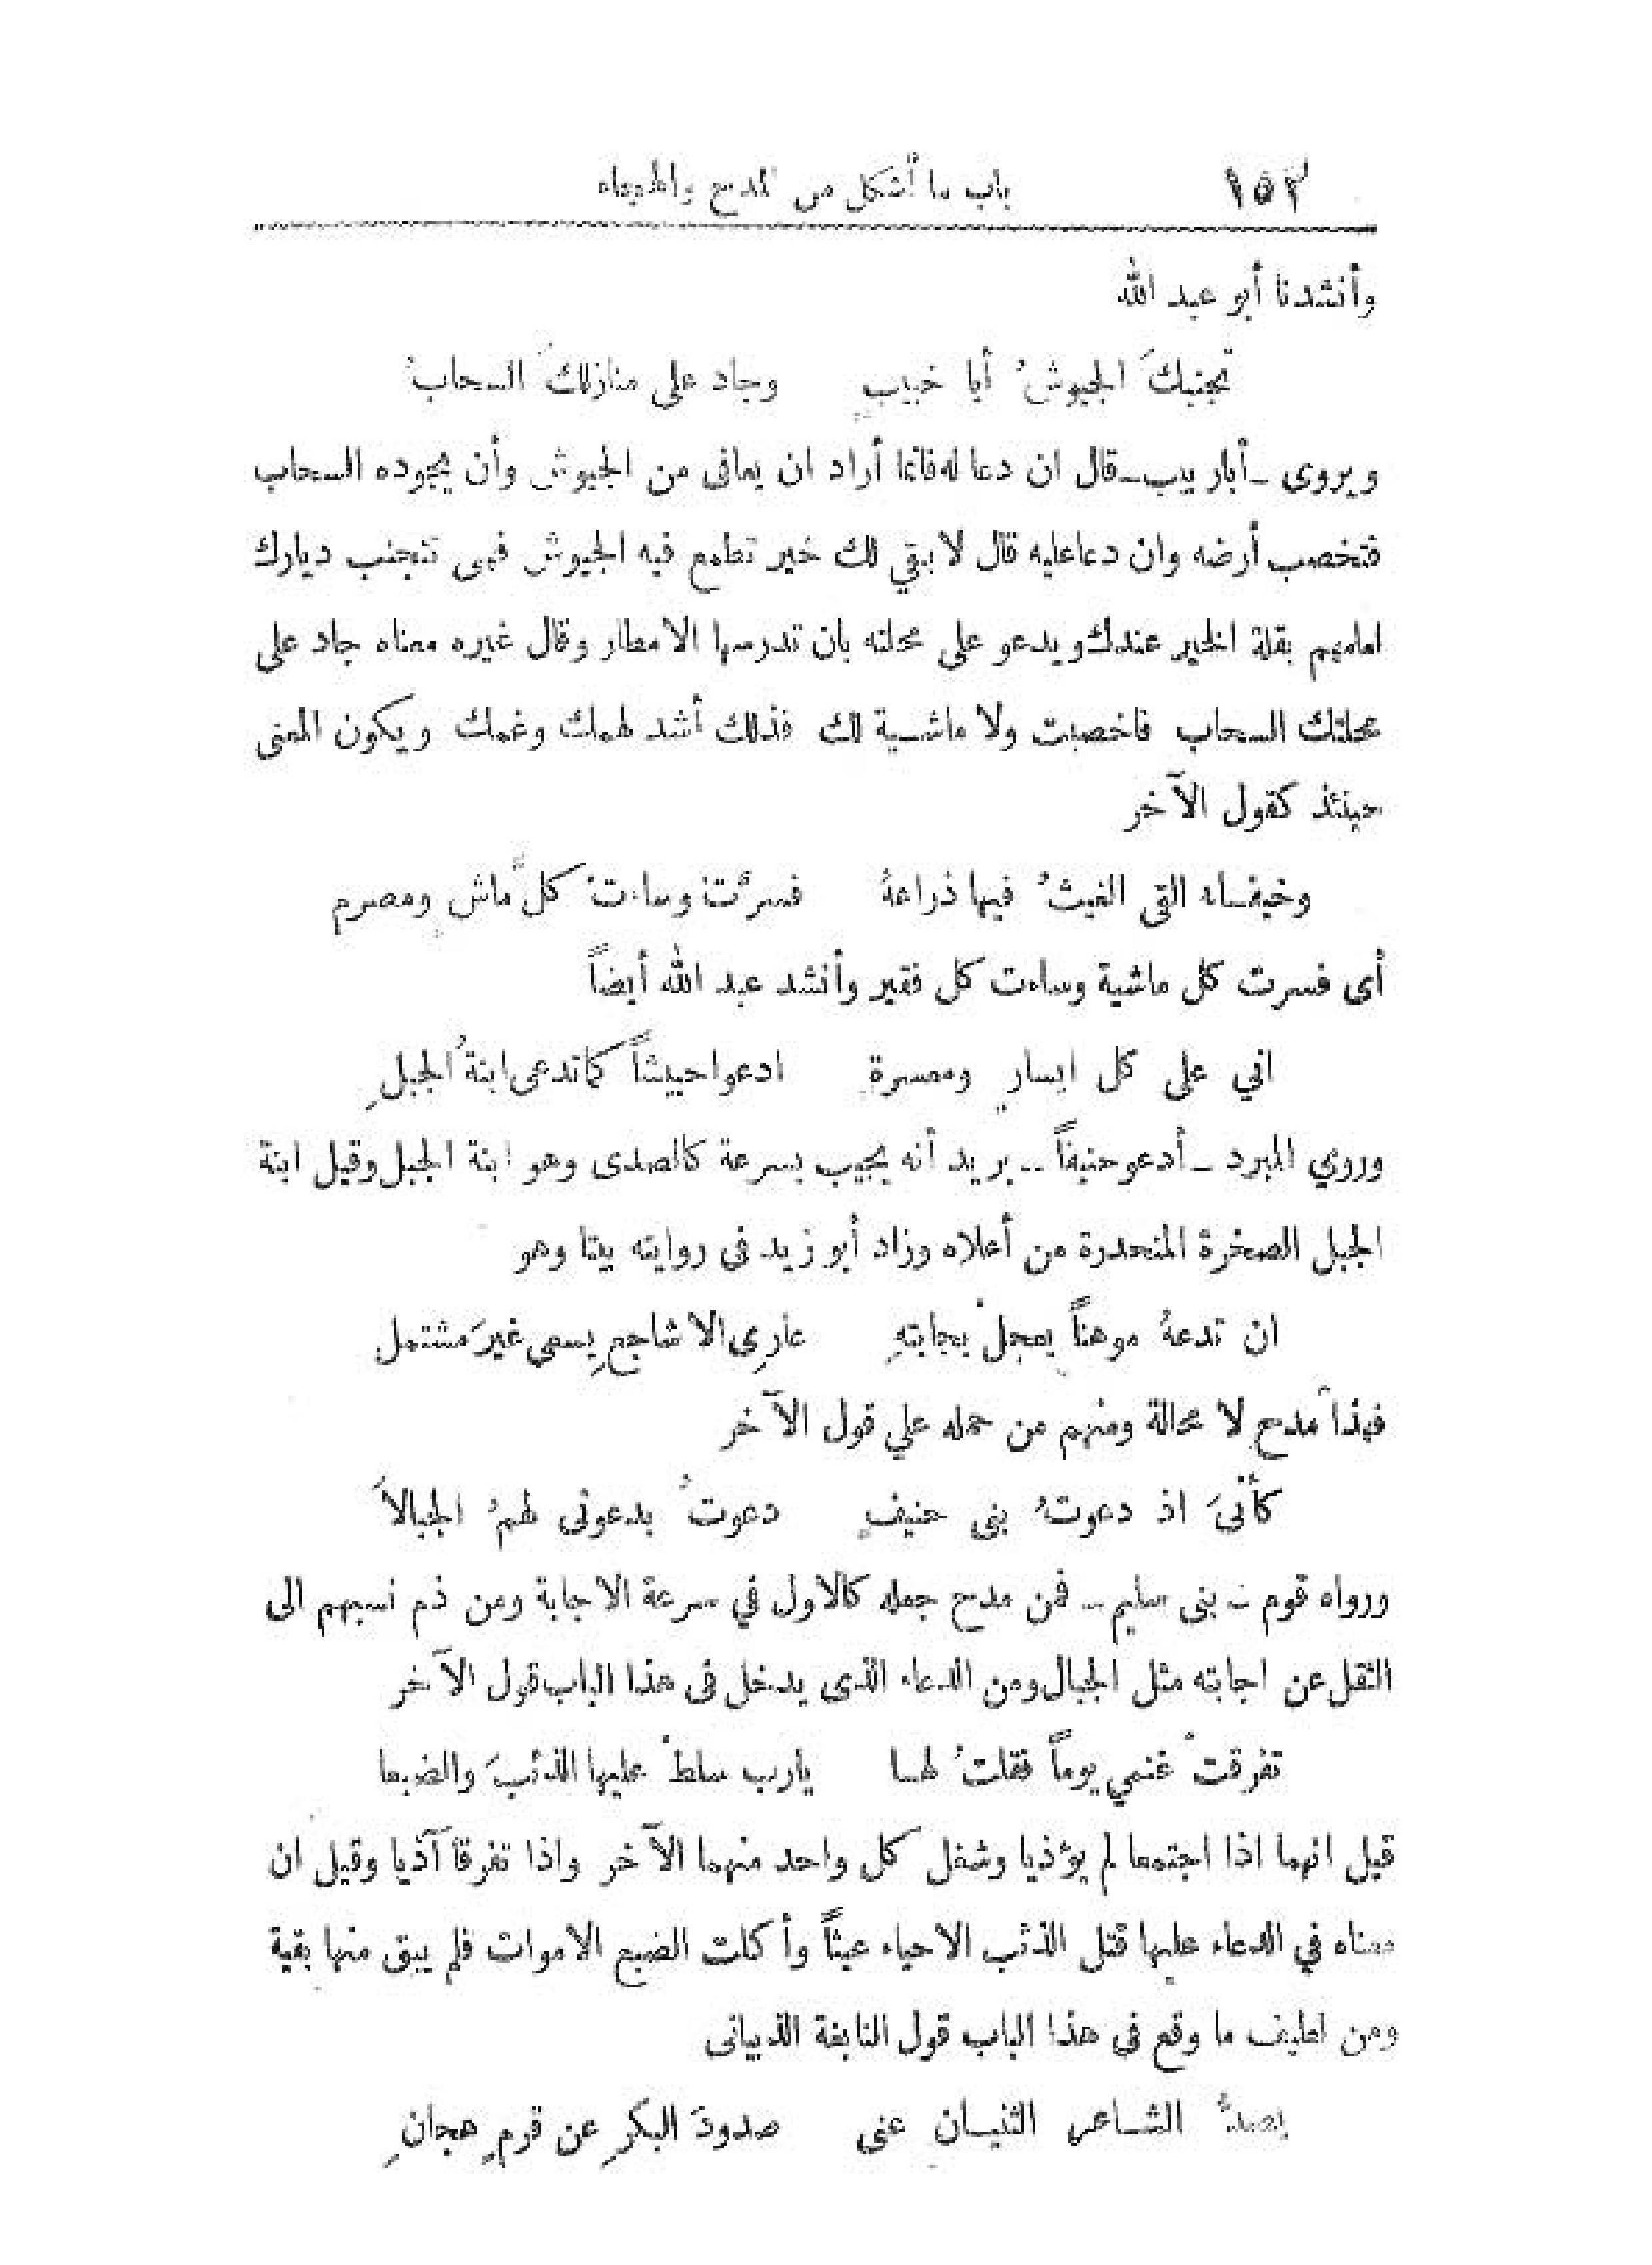 ١٥٢ باب ما أشكل من المدح والهجاء
وأنشدنا أبو عبد الله
تجنبكَ الجيوشُ أبا خبيبٍ وجاد على منازلكَ السحابُ
ويروى _أبا ربيب_ قال ان دعا له فانما أراد ان يعافى من الجيوش وأن يجوده السحاب
فتخصب أرضه وان دعا عليه قال لا بقي لك خير تطمع فيه الجيوش فهى تتجنب ديارك
لعلمهم بقلة الخير عندك ويدعو على محلته بان تدرسها الامطار وقال غيره معناه جاد على
محلتك السحاب فاخصبت ولا ماشية لك فذلك أشد لهمك وغمك ويكون المعنى
حينئذ كقول الآخر
وخيفاء القى الغيثُ فيها ذراعهُ فسرَّت وساءت كلَّ ماش ومصرم
أى فسرت كل ماشية وساءت كل فقير وأنشد عبد الله أيضاً
اني على كل ايسارٍ ومعسرة ادعوا حبيشاً كما تدعى ابنةُ الجبلِ
وروي المبرد _ أدعو حنيفاً _ يريد أنه يجيب بسرعة كالصدى وهو ابنة الجبل وقيل ابنة
الجبل الصخرة المنحدرة من أعلاه وزاد أبو زيد فى روايته بيتا وهو
ان تدعهُ موهناً يعجلْ بجابتهِ عارى الاشاجعِ يسعى غيرَ مشتمل
فهذا مدح لا محالة ومنهم من حمله علي قول الآخر
كأنىَ اذ دعوتُ بنى حنيفٍ دعوتُ بدعوتى لهمُ الجبالاَ
ورواه قوم _ بنى سليم _ فمن مدح جعله كالاول في سرعة الاجابة ومن ذم نسبهم الى
الثقل عن اجابته مثل الجبال ومن الدعاء الذى يدخل فى هذا الباب قول الآخر
تفرقتْ غنمي يوماً فقلتُ لها يارب سلطْ عليها الذئبَ والضبعا
قيل انهما اذا اجتمعا لم يؤذيا وشغل كل واحد منهما الآخر واذا تفرقا آذيا وقيل ان
معناه في الدعاء عليها قتل الذئب الاحياء عيثاً وأكلت الضبع الاموات فلم يبق منها بقية
ومن لطيف ما وقع فى هذا الباب قول النابغة الذبيانى
يصدُّ الشاعر الثنيان عنى صدودَ البكرِ عن قرمٍ هجانِ